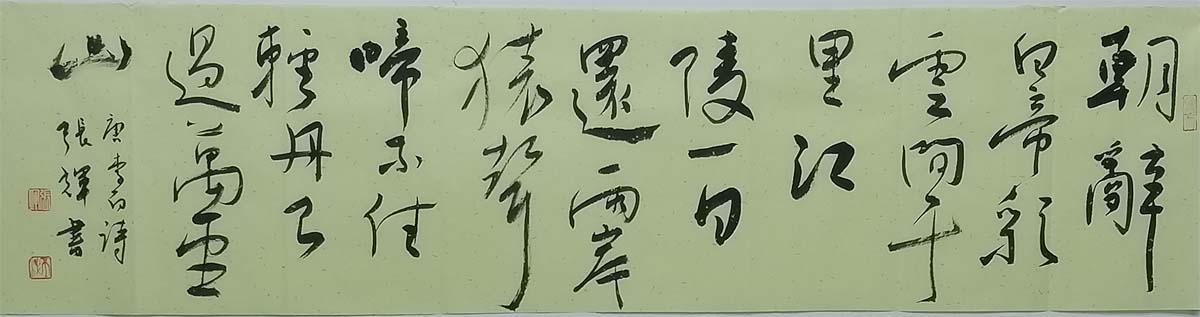 朝辭
白帝彩
雲間千
里江
陵一日
還兩岸
猿聲
啼不住
輕舟已
過萬重
山
唐李白詩
張輝書